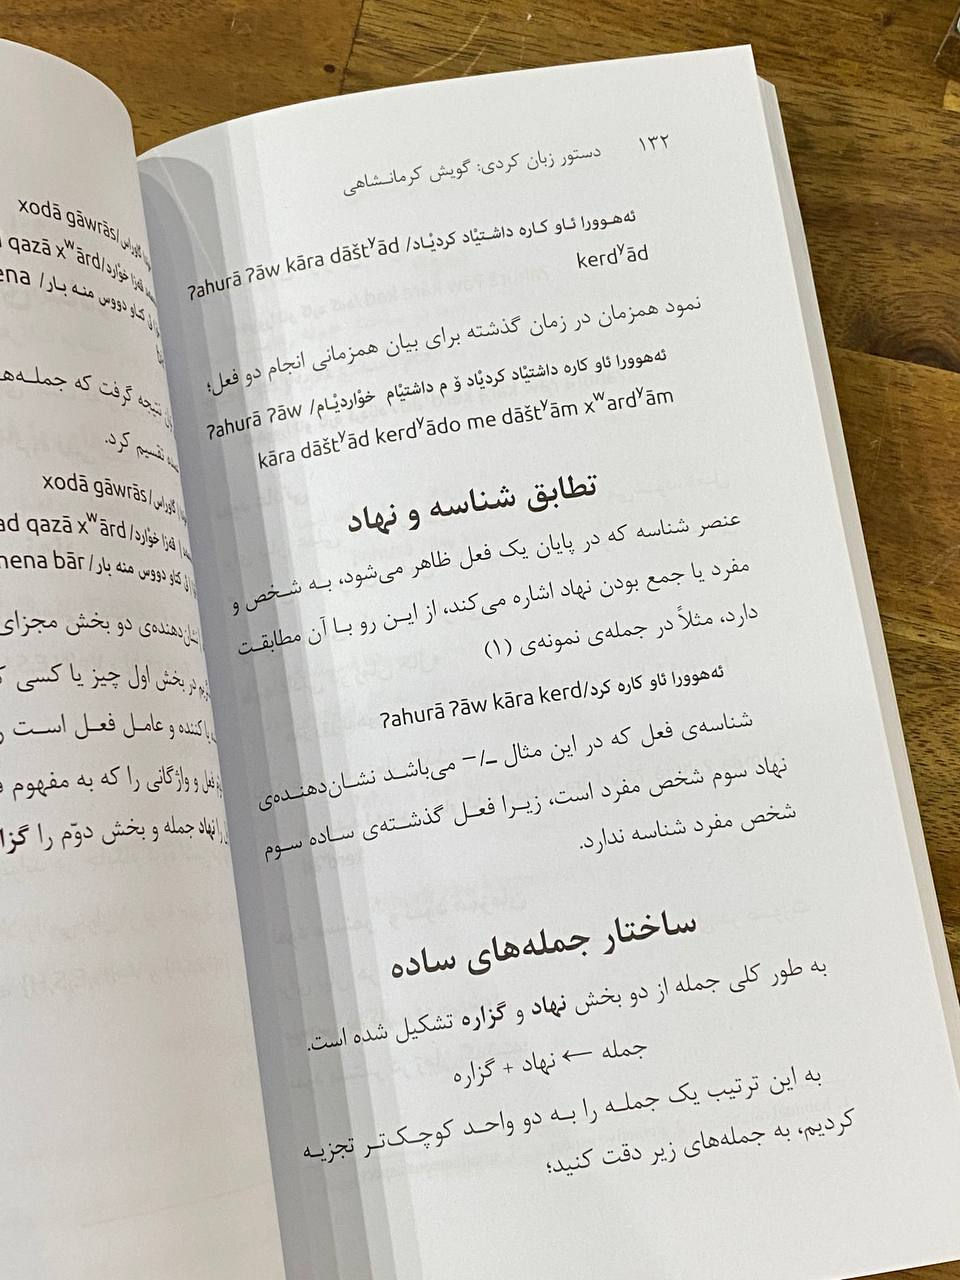 ۱۳۲ دستور زبان کردی: گویش کرمانشاهی
ئەهوورا ئاو کاره داشتیْاد کردیْاد/ ʔahurā ʔāw kāra dāštʸād
kerdʸād
نمود همزمان در زمان گذشته برای بیان همزمانی انجام دو فعل؛
ئەهوورا ئاو کاره داشتیْاد کردیْاد ۆ م داشتیْام خوْاردیْام/ ʔahurā ʔāw
kāra dāštʸād kerdʸādo me dāštʸām xʷardʸām
تطابق شناسه و نهاد
عنصر شناسه که در پایان یک فعل ظاهر می‌شود، به شخص و
مفرد یا جمع بودن نهاد اشاره می‌کند، از این رو با آن مطابقت
دارد، مثلاً در جمله‌ی نمونه‌ی (۱)
ئەهوورا ئاو کاره کرد/ʔahurā ʔāw kāra kerd
شناسه‌ی فعل که در این مثال ـ/− می‌باشد نشان‌دهنده‌ی
نهاد سوم شخص مفرد است، زیرا فعل گذشته‌ی ساده سوم
شخص مفرد شناسه ندارد.
ساختار جمله‌های ساده
به طور کلی جمله از دو بخش نهاد و گزاره تشکیل شده است.
جمله ← نهاد + گزاره
به این ترتیب یک جمله را به دو واحد کوچک‌تر تجزیه
کردیم، به جمله‌های زیر دقت کنید؛
گاوراس/xodā gāwrās
قەزا خوْارد/qazā xʷārd
کاو دووس منه بار/
نتیجه گرفت که جمله‌ه
تقسیم کرد.
گاوراس/xodā gāwrās
قەزا خوْارد/ad qazā xʷārd
کاو دووس منه بار/nena bār
نشان‌دهنده‌ی دو بخش مجزای
در بخش اول چیز یا کسی
کننده و عامل فعل است
فعل و واژگانی را که به مفهوم
را نهاد جمله و بخش دوّم را گزا